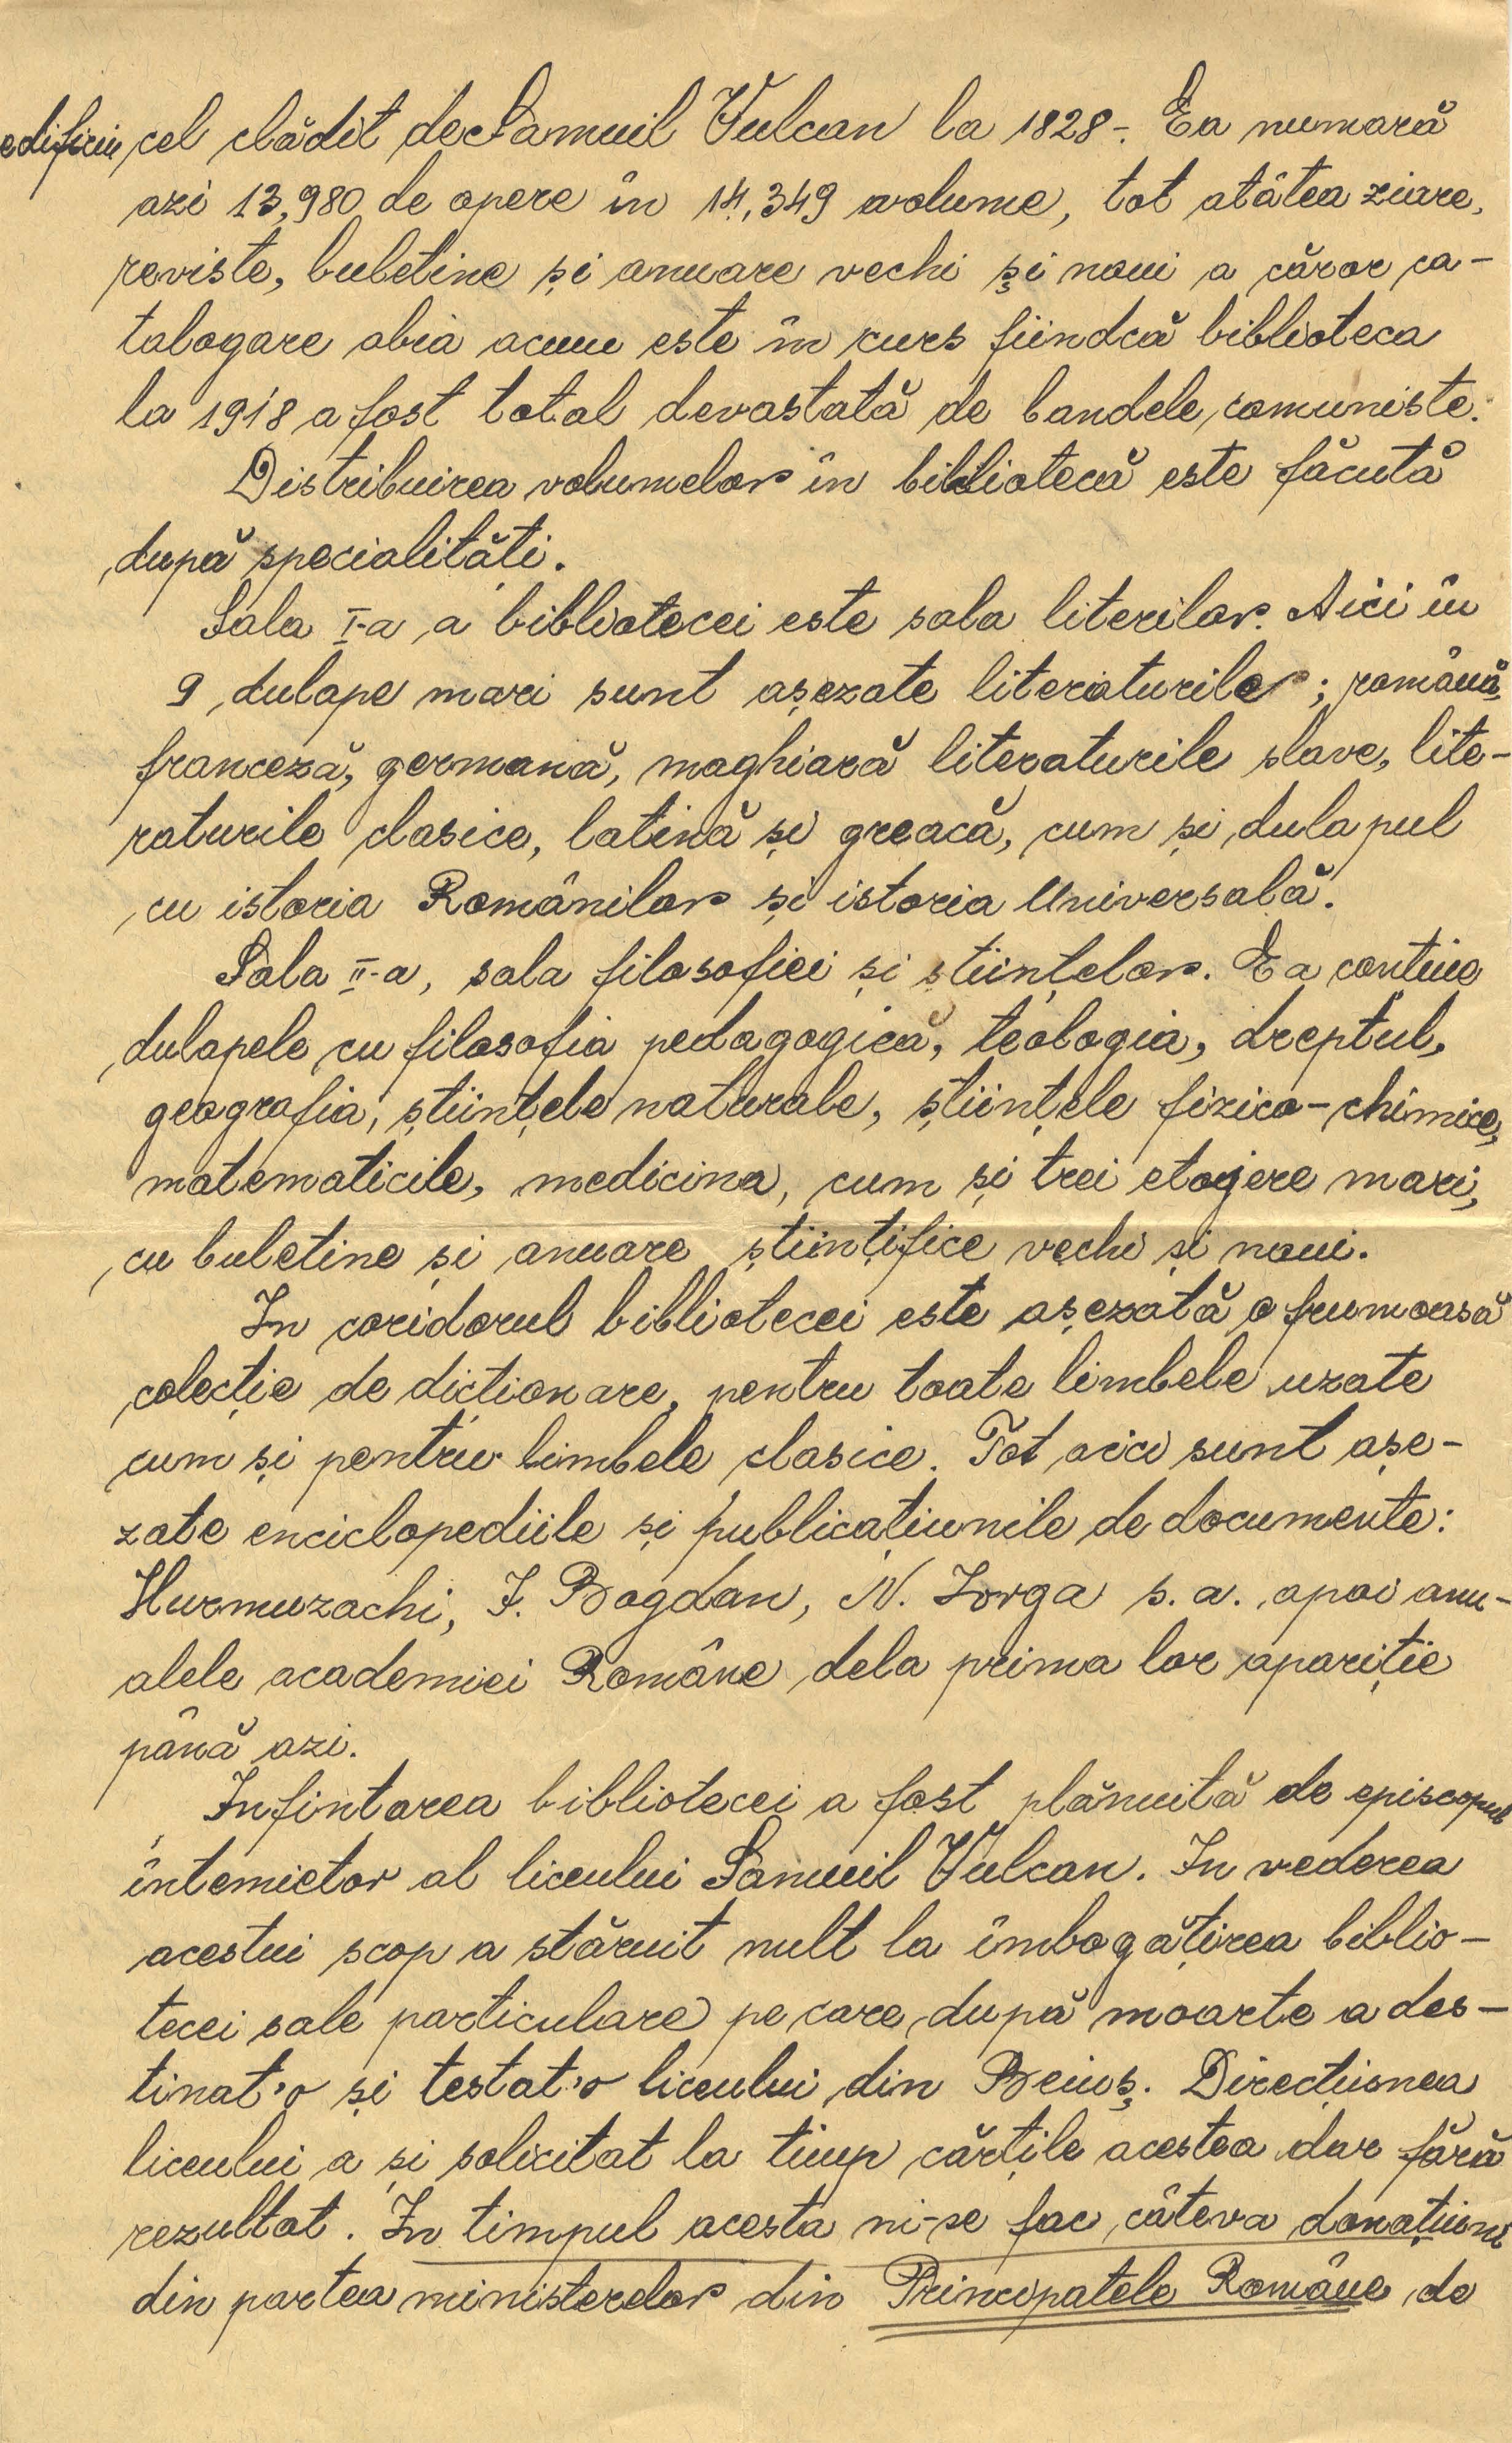 edificiu, cel clădit de Samuil Vulcan la 1828-. Ea numară
azi 13,980 de opere în 14,349 volume, tot atâtea ziare,
reviste, buletine și anuare vechi și noui a căror ca-
talogare abia acum este în curs fiindcă biblioteca
la 1918 a fost total devastată de bandele comuniste.
Distribuirea volumelor în bibliotecă este făcută
după specialităti.
Sala I-a a bibliotecei este sala literilor. Aici în
9 dulape mari sunt așezate literaturiler; română,
franceză, germană, maghiară literaturile slave, lite-
raturile clasice, latină și greacă, cum și dulapul
cu istoria Românilor și istoria Universală.
Sala II-a, sala filosofiei și stiințelor. Ea conține
dulapele cu filosofia pedagogică, teologia, dreptul,
geografia, științele naturale, științele fizico-chimice,
matematicile, medicina, cum și trei etajere mari,
cu buletine și anuare științifice vechi și noui.
In coridorul bibliotecei este așezată o frumoasă
colecție de dictionare, pentru toate limbele uzate
cum și pentru limbele clasice. Tot aici sunt așe-
zate enciclopediile și publicațiunile de documente:
Hurmuzachi, I. Bogdan, N. Iorga s. a. apoi anu-
alele academiei Române dela prima lor apariție
până azi.
Infintarea bibliotecei a fost plănuită de episcopul
întemietor al liceului Samuil Vulcan. In vederea
acestui scop a stăruit mult la îmbogățirea biblio-
tecei sale particulare pe care după moarte a des-
tinat'o și testat'o liceului din Beiuș. Direcțiunea
liceului a și solicitat la timp cărțile acestea dar fără
rezultat. In timpul acesta ni-se fac câteva donațiuni
din partea ministerelor din Principatele Române de